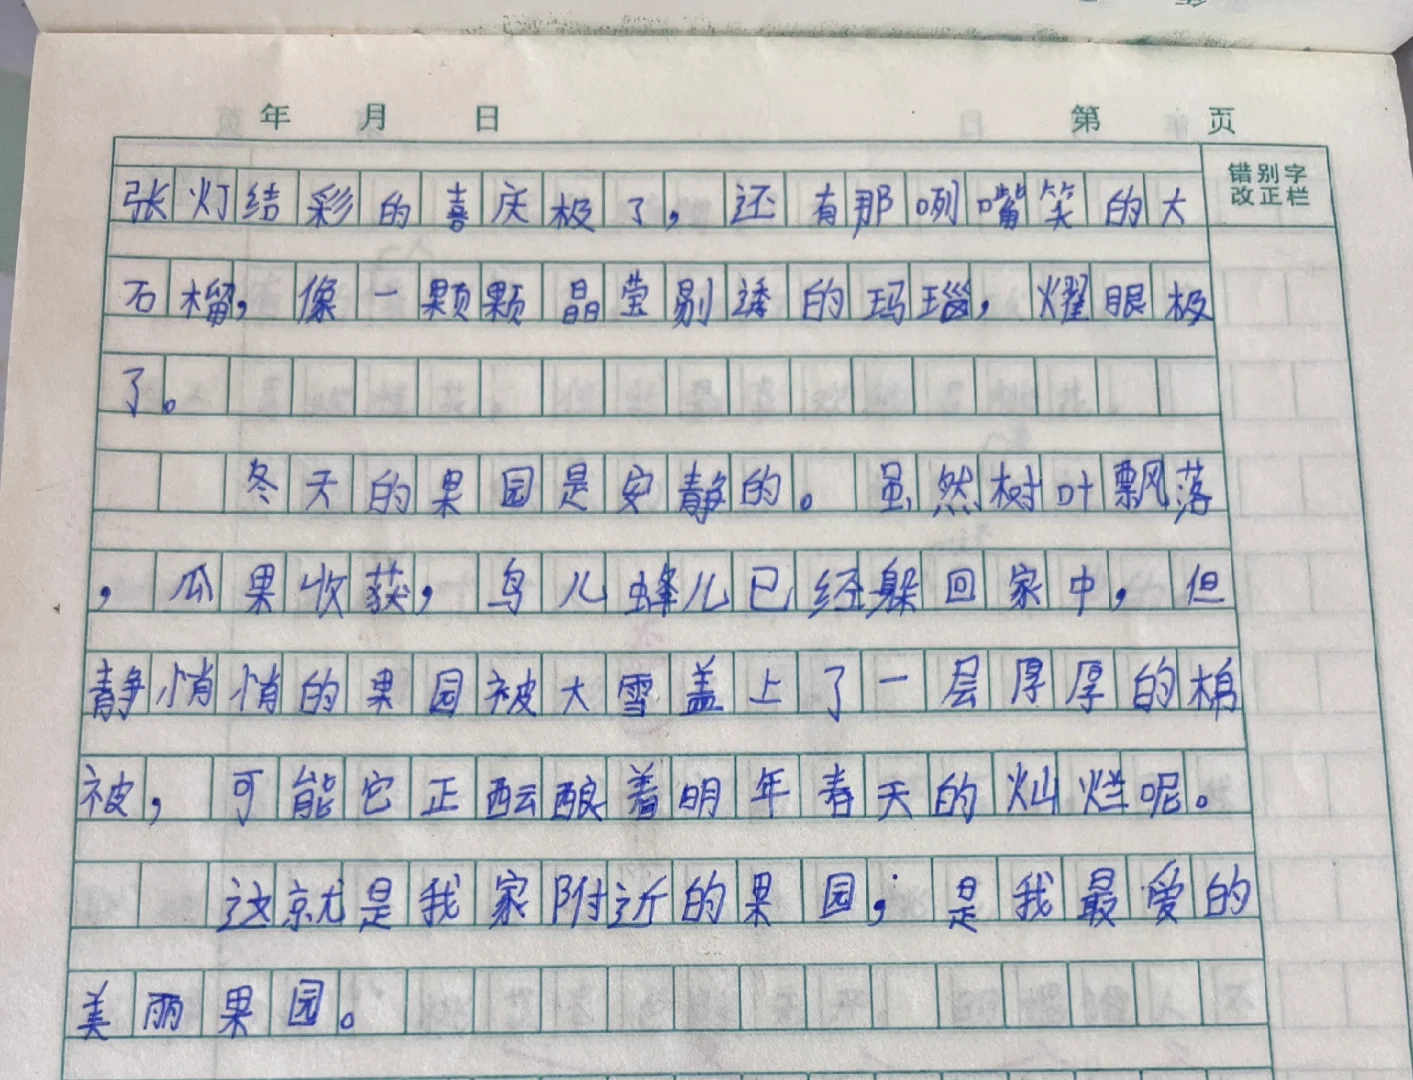 年 月 日 第 页
错别字
改正栏
张灯结彩的喜庆极了，还有那咧嘴笑的大
石榴，像一颗颗晶莹剔透的玛瑙，耀眼极
了。
冬天的果园是安静的。虽然树叶飘落
，瓜果收获，鸟儿蜂儿已经躲回家中，但
静悄悄的果园被大雪盖上了一层厚厚的棉
被，可能它正酝酿着明年春天的灿烂呢。
这就是我家附近的果园；是我最爱的
美丽果园。